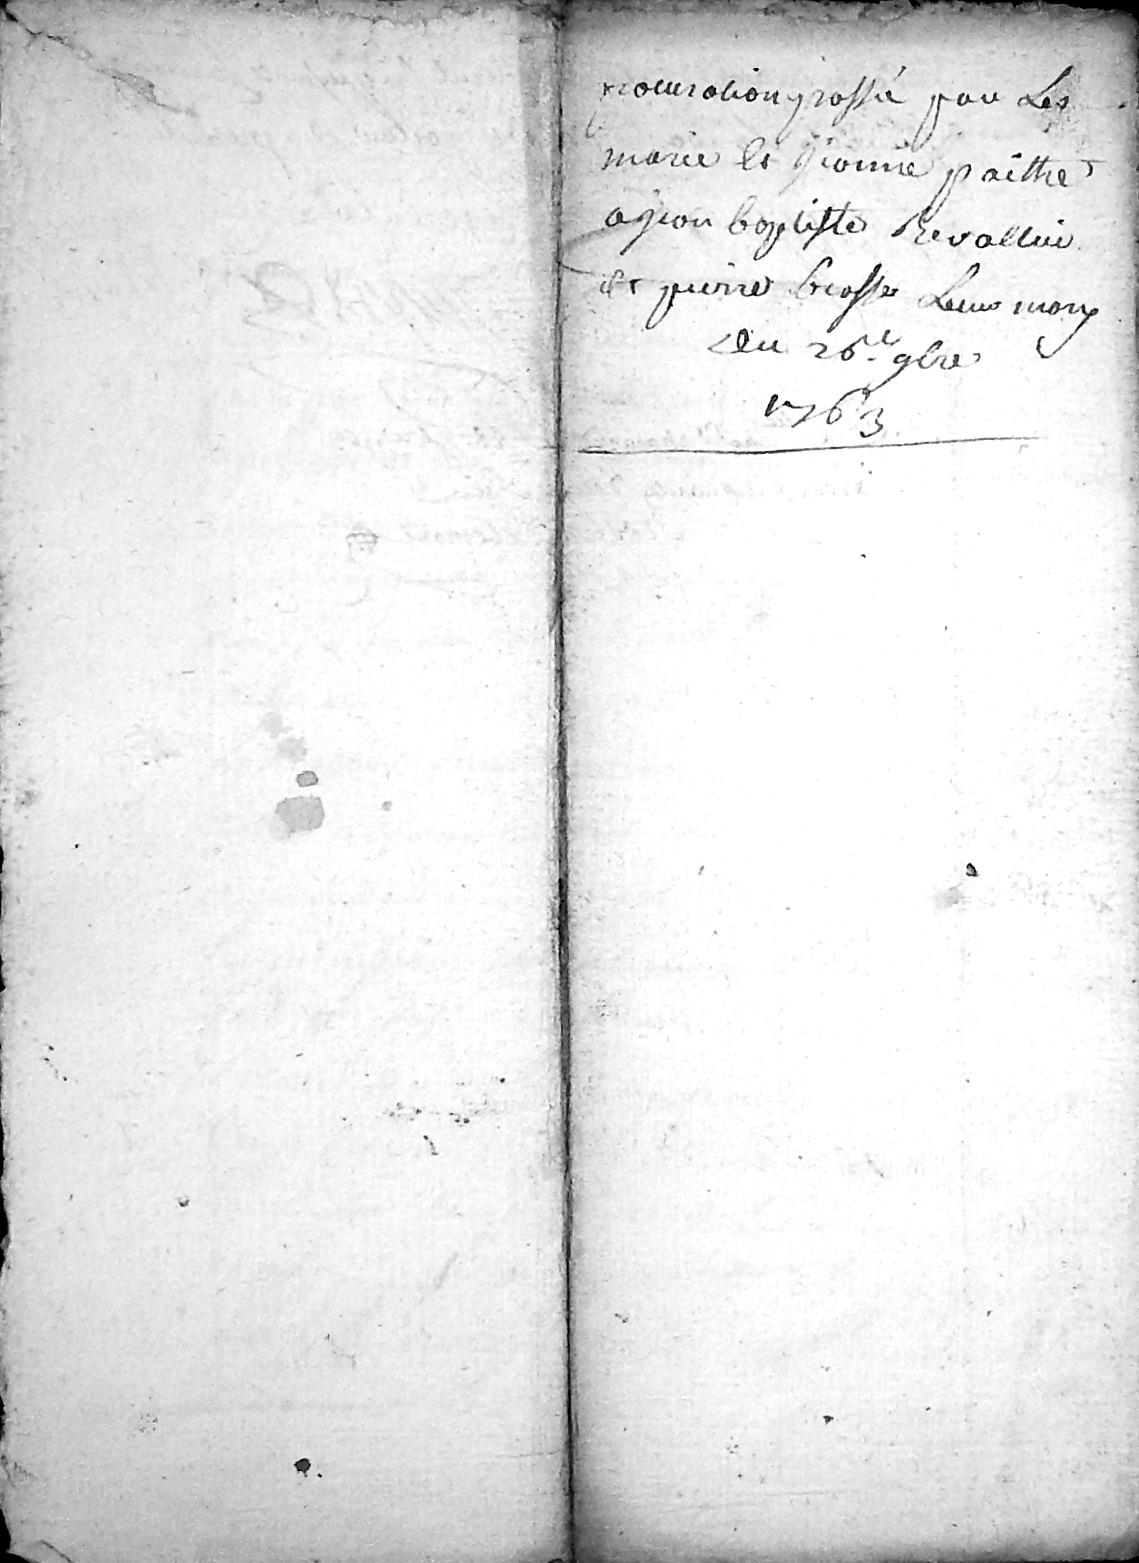 procuration passé par Les
marie et Jeanne paître
a jean baptiste Revallin
et pierre brosse Leurs marys
du 26.e 9bre
1763